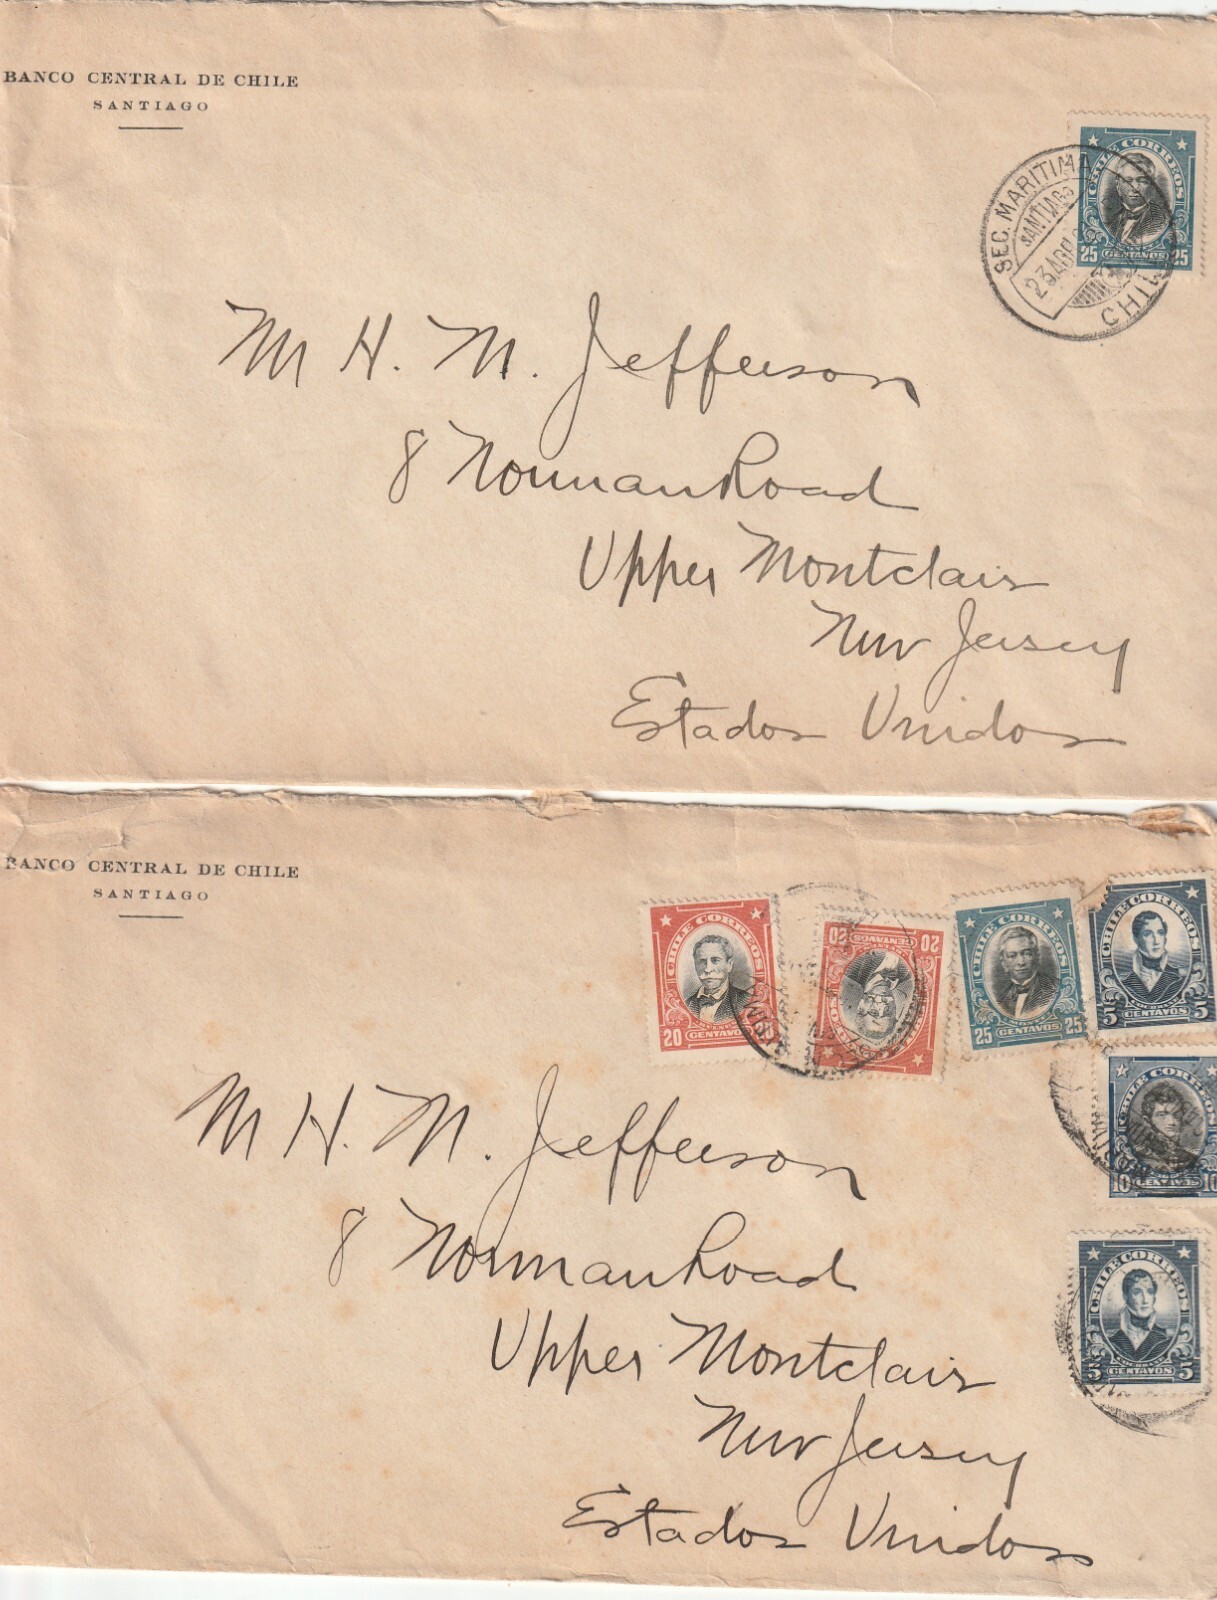 BANCO CENTRAL DE CHILE
SANTIAGO
CHILE CORREOS
25 CENTAVOS 25
SEC. MARITIMA
SANTIAGO
23 ABR
CHILE
Mr H. M. Jefferson
8 Norman Road
Upper Montclair
New Jersey
Estados Unidos
BANCO CENTRAL DE CHILE
SANTIAGO
CHILE CORREOS
20 CENTAVOS
20 CENTAVOS 20
CHILE CORREOS
25 CENTAVOS 25
CHILE CORREOS
COCHRANE
5 CENTAVOS 5
CHILE CORREOS
10 CENTAVOS 10
CHILE CORREOS
COCHRANE
5 CENTAVOS 5
Mr H. M. Jefferson
8 Norman Road
Upper Montclair
New Jersey
Estados Unidos